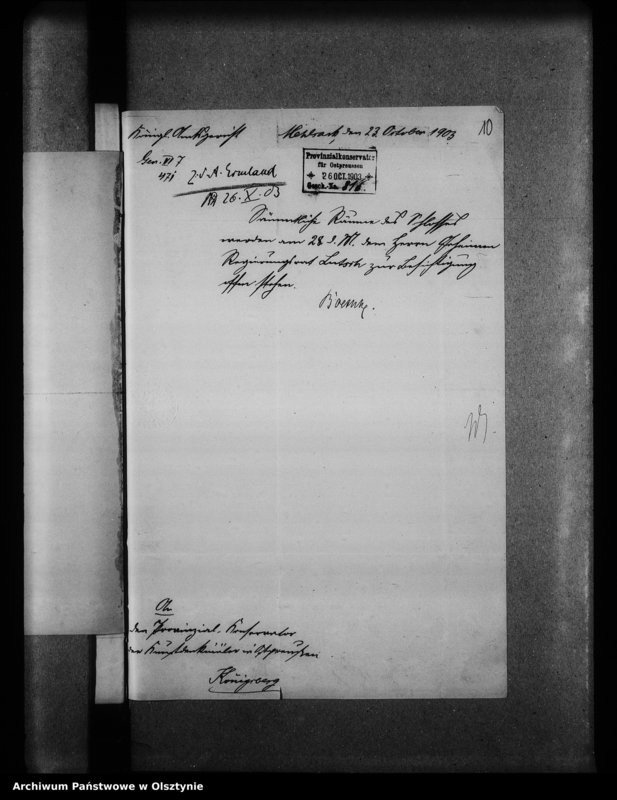 Königl. Amtsgericht
Mehlsack, den 23. October 1903
10
Gen. VI 7
471
Z. d. A. Ermland
26.X.03
Provinzialkonservator
für Ostpreussen
26 OCT. 1903
Gesch.-No. 816.
Sämmtliche Räume des Schlosses
werden am 28 d. M. dem Herrn Geheimen
Regierungsrat Lutsch zur Besichtigung
offen stehen.
An
den Provinzial-Konservator
der Kunstdenkmäler in Ostpreußen
Königsberg
Archiwum Państwowe w Olsztynie